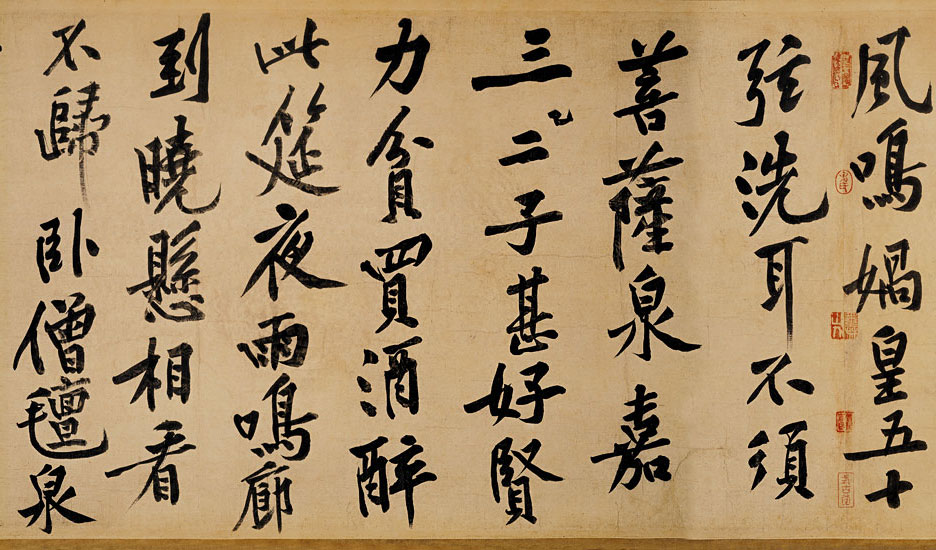 風鳴媧皇五十
弦洗耳不須
菩薩泉嘉
三二子甚好賢
力貧買酒醉
此筵夜雨鳴廊
到曉懸相看
不歸卧僧氊泉